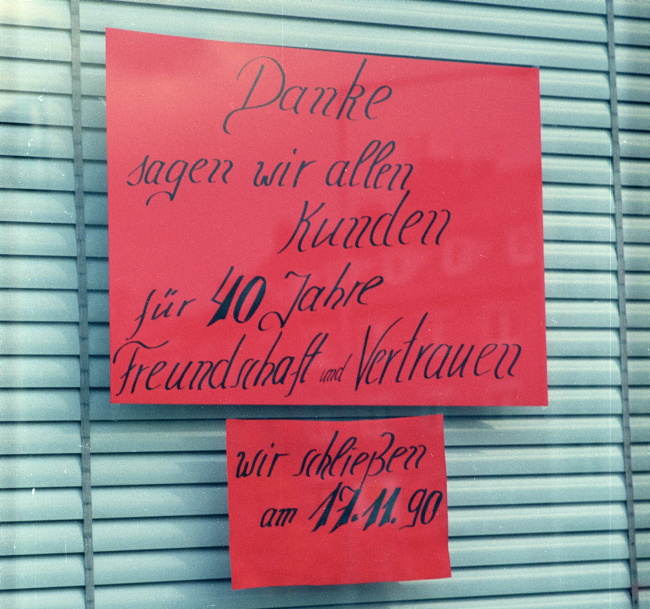 Danke
sagen wir allen
Kunden
für 40 Jahre
Freundschaft und Vertrauen
wir schließen
am 17.11.90